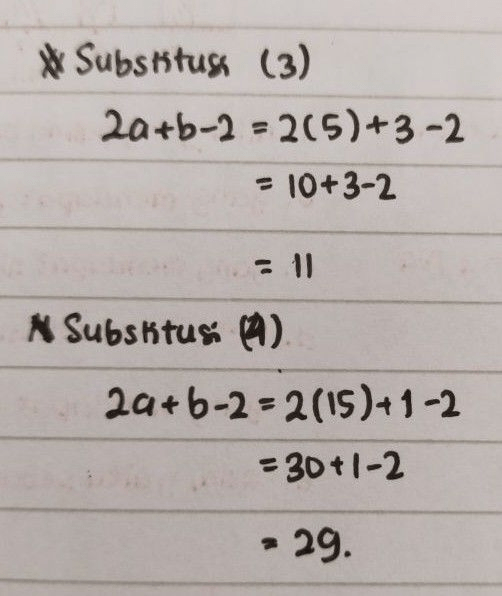 ※ Substitusi (3)
2a+b-2 = 2(5)+3-2
= 10+3-2
= 11
※ Substitusi (4)
2a+b-2 = 2(15)+1-2
= 30+1-2
= 29.